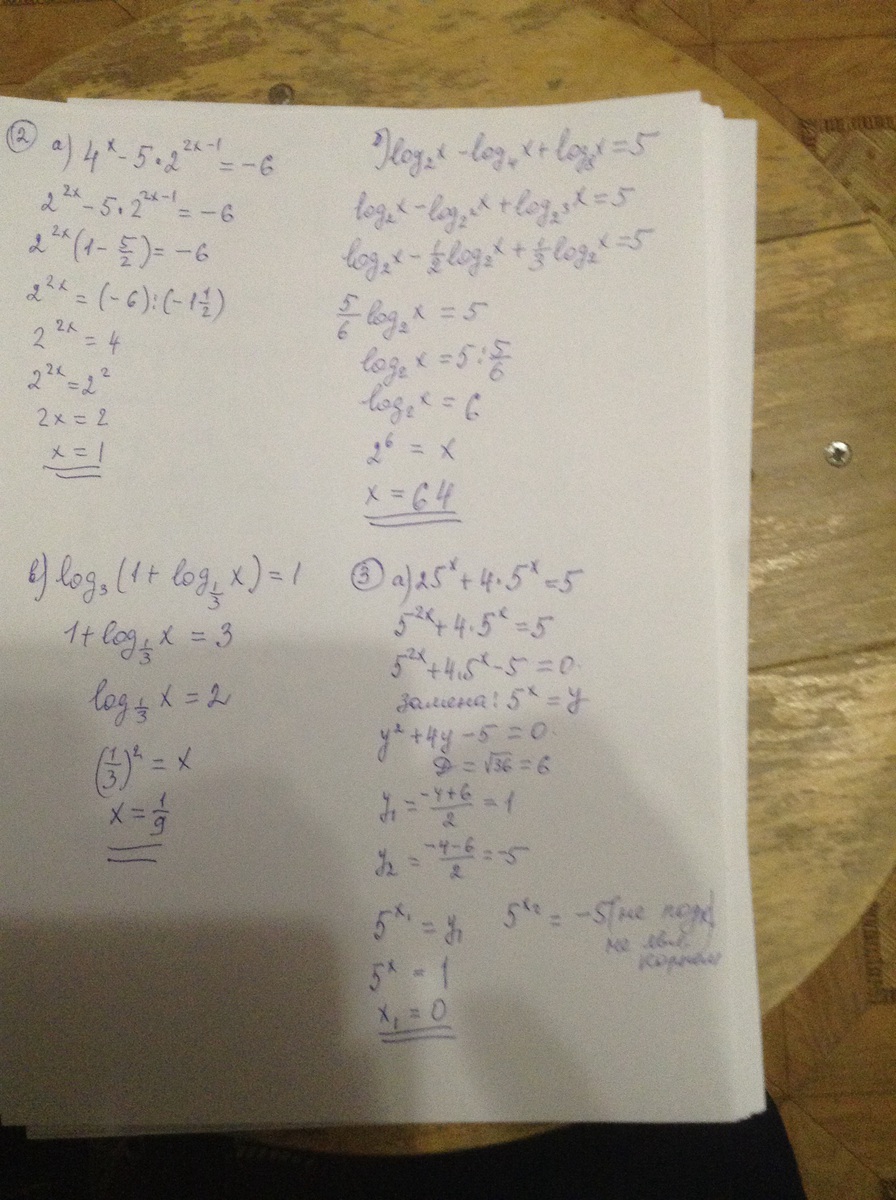 ② а) 4^x - 5·2^{2x-1} = -6
2^{2x} - 5·2^{2x-1} = -6
2^{2x}(1 - 5/2) = -6
2^{2x} = (-6):(-1 1/2)
2^{2x} = 4
2^{2x} = 2^2
2x = 2
x = 1
б) log_2 x - log_4 x + log_8 x = 5
log_2 x - log_{2^2} x + log_{2^3} x = 5
log_2 x - 1/2 log_2 x + 1/3 log_2 x = 5
5/6 log_2 x = 5
log_2 x = 5 : 5/6
log_2 x = 6
2^6 = x
x = 64
в) log_3 (1 + log_{1/3} x) = 1
1 + log_{1/3} x = 3
log_{1/3} x = 2
(1/3)^2 = x
x = 1/9
③ а) 25^x + 4·5^x = 5
5^{2x} + 4·5^x = 5
5^{2x} + 4·5^x - 5 = 0
замена: 5^x = y
y^2 + 4y - 5 = 0
D = √36 = 6
y_1 = (-4+6)/2 = 1
y_2 = (-4-6)/2 = -5
5^{x_1} = y_1 5^{x_2} = -5 (не подх)
не явл.
корнем
5^x = 1
x_1 = 0